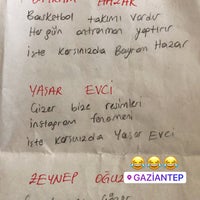 BAYRAM HAZAR
Basketbol takımı vardır
Her gün antranman yaptırır
İşte karşınızda Bayram Hazar
YAŞAR EVCİ
Çizer bize resimleri
instagram fenomeni
işte karşınızda Yaşar EVCİ
GAZİANTEP
ZEYNEP OĞUZ